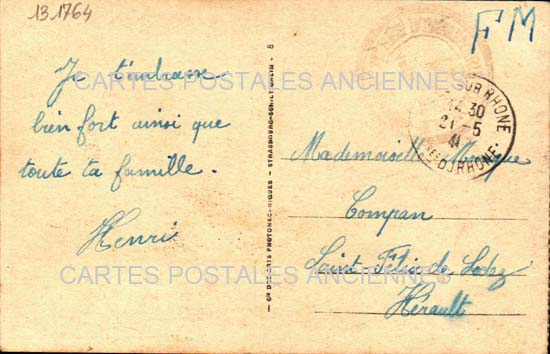 13.1764
FM
Je t'embrasse
bien fort ainsi que
toute ta famille.
Henri
8
STRASBOURG-SCHILTIGHEIM
SUR RHONE
14 30
21-5
41
DU RHONE
Mademoiselle
Compan
Saint-Félix-de-Lodez
Hérault
CARTES POSTALES ANCIENNES
CARTES POSTALES ANCIENNES